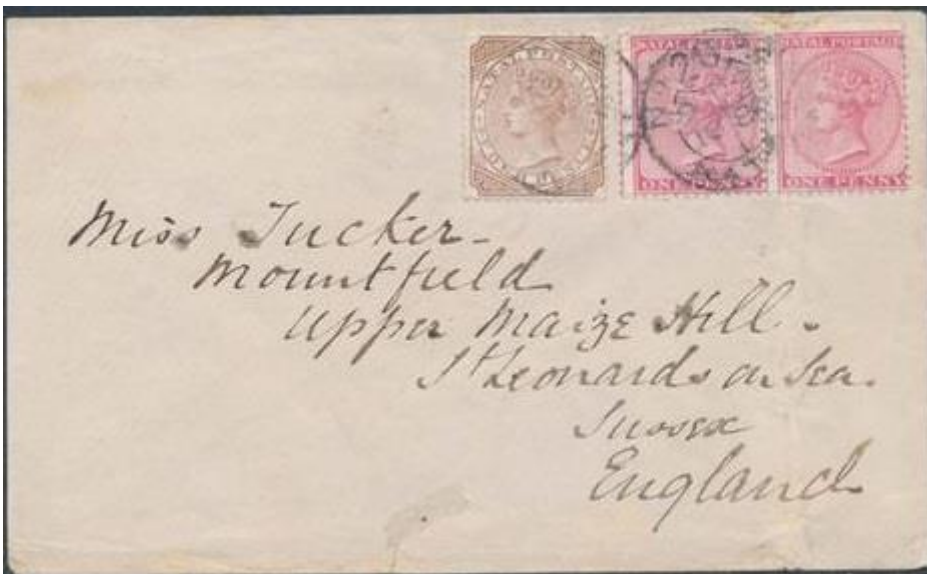 NATAL POSTAGE
NATAL POSTAGE
NATAL POSTAGE
ONE PENNY
ONE PENNY
Miss Tucker -
Mountfield
Upper Maize Hill .
St Leonards on Sea .
Sussex
England